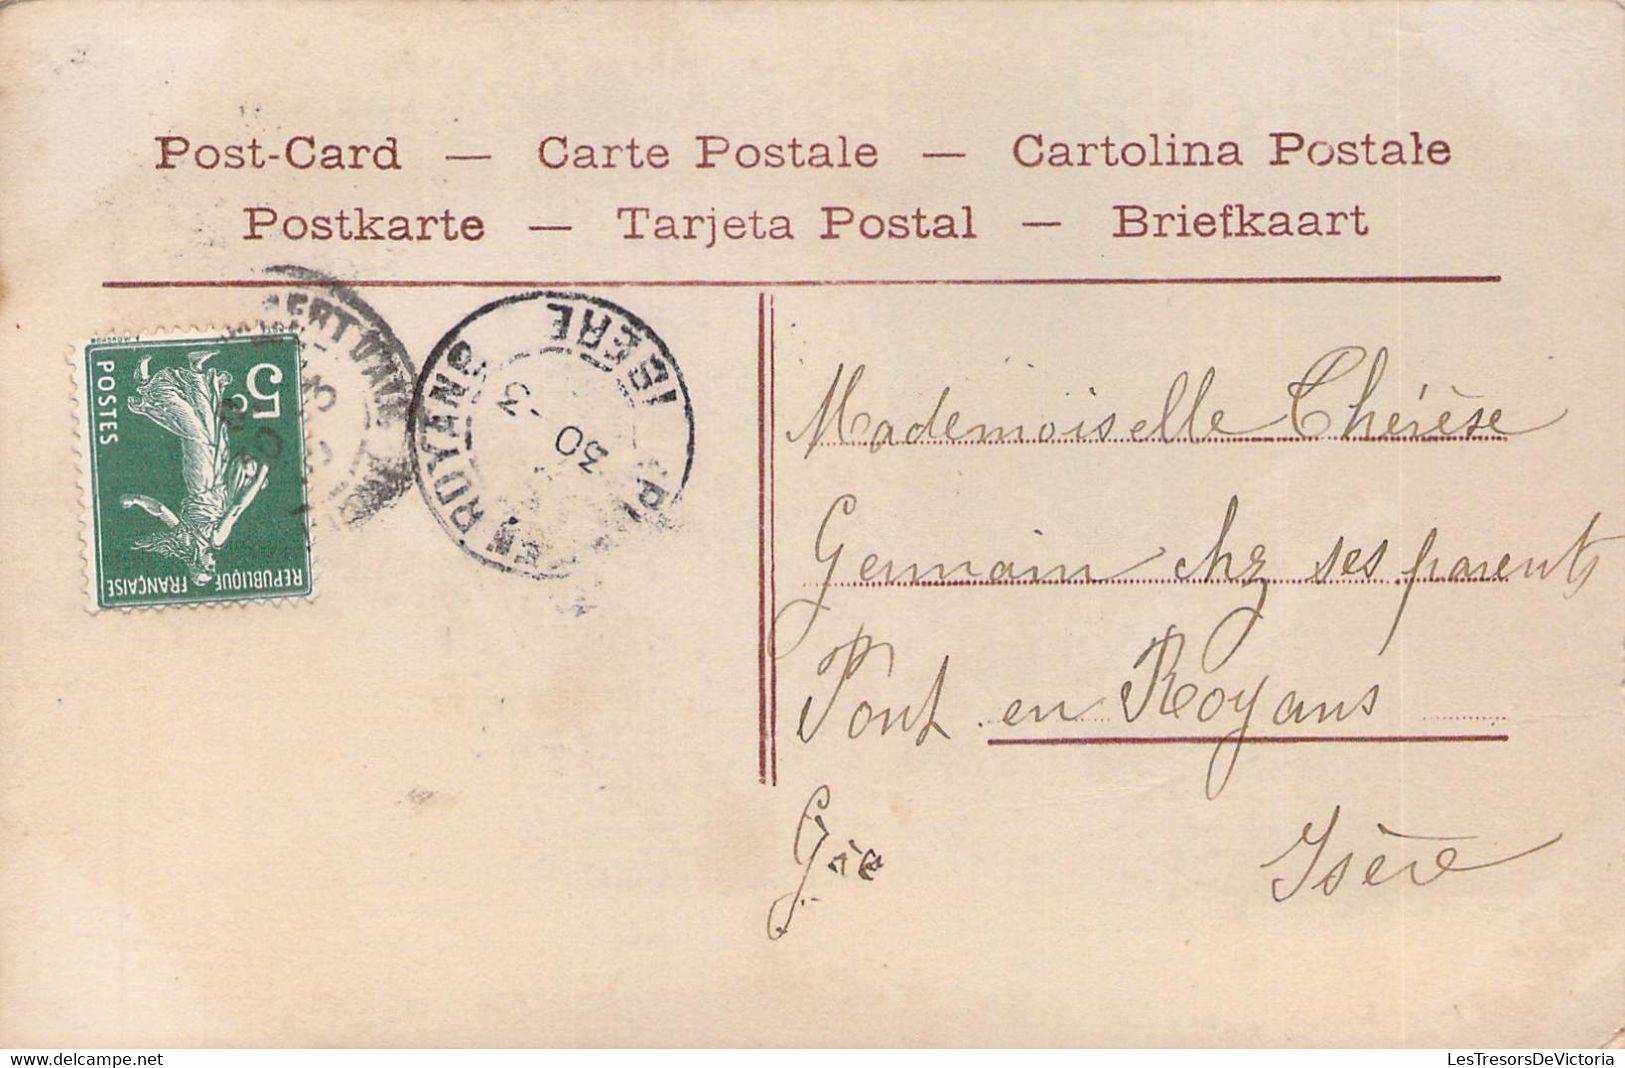 Post-Card — Carte Postale — Cartolina Postale
Postkarte — Tarjeta Postal — Briefkaart
5c
POSTES
REPUBLIQUE FRANÇAISE
EN ROYANS
ISERE
30 - 3
Mademoiselle Thérèse
Germain chez ses parents
Pont en Royans
Isère
delcampe.net
LesTresorsDeVictoria